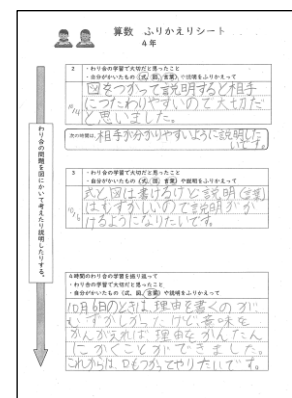 算数 ふりかえりシート
4年
わり合の問題を図にかいて考えたり説明したりする。
2
・わり合の学習で大切だと思ったこと
・自分がかいたもの（式、図、言葉）や説明をふりかえって
図をつかって説明すると相手
につたわりやすいので大切だ
と思いました。
次の時間は、相手が分かりやすいように説明した
いです。
3
・わり合の学習で大切だと思ったこと
・自分がかいたもの（式、図、言葉）や説明をふりかえって
式と図は書けるけど説明(言葉)
はむずかしいので説明がか
けるようになりたいです。
4時間のわり合の学習を振り返って
・わり合の学習で大切だと思ったこと
・自分がかいたもの（式、図、言葉）や説明をふりかえって
10月6日のときは、理由を書くのが
むずかしかったけど、意味を
かんがえれば理由をかんたん
にかくことができました。
これからは、
やりたいです。